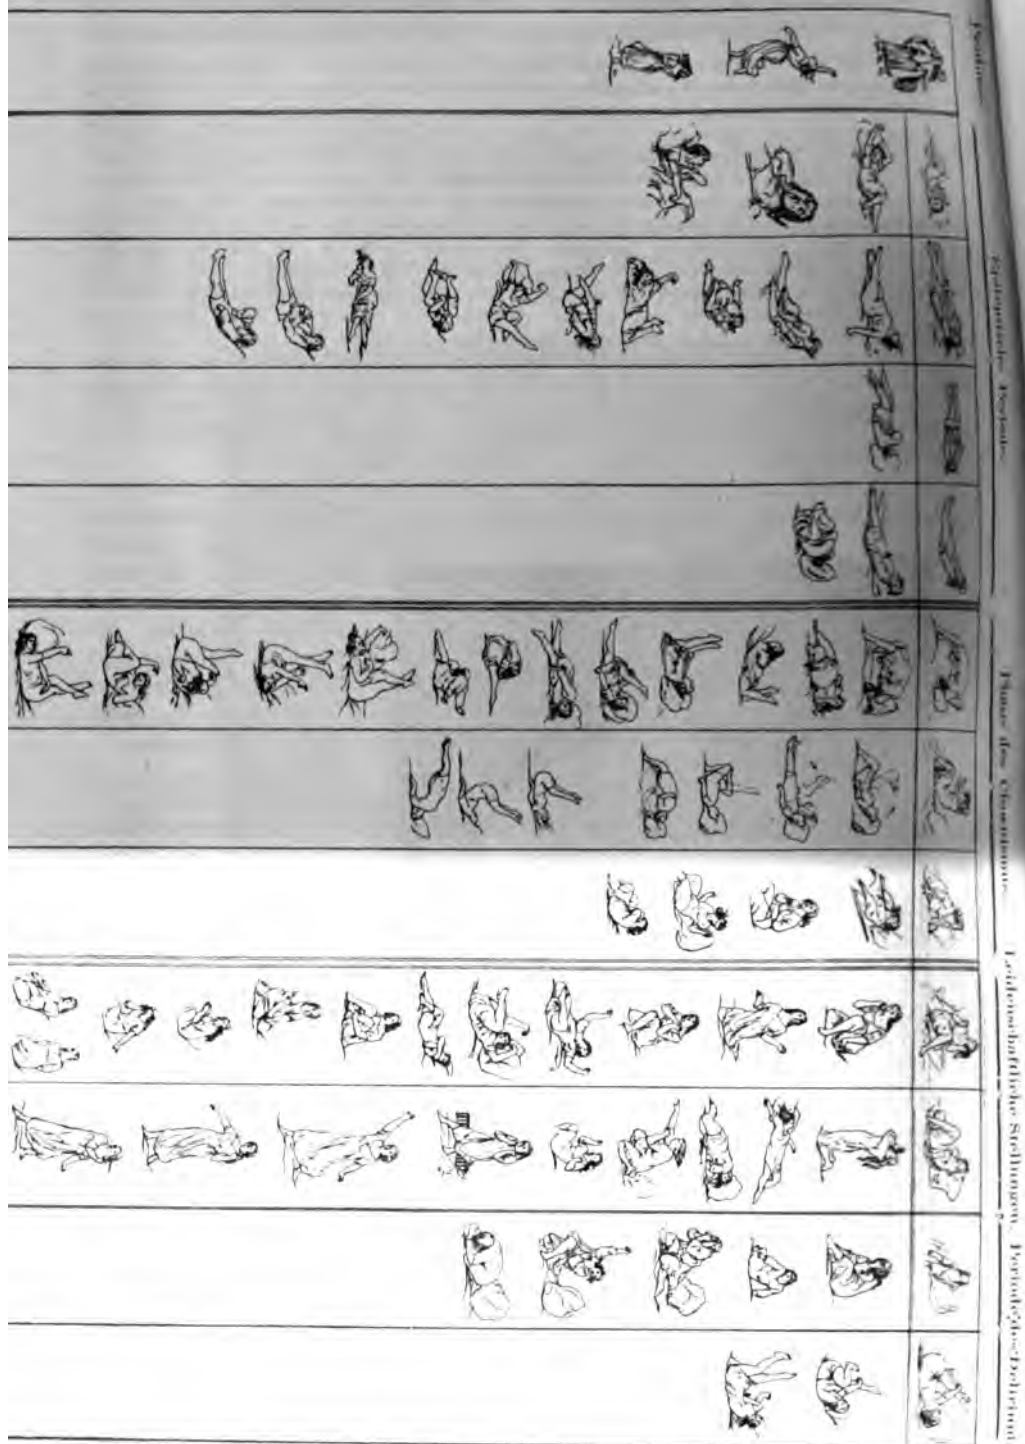 Epileptische Periode.
Phase des Clownismus.
Leidenschaftliche Stellungen.
Periode des Deliriums